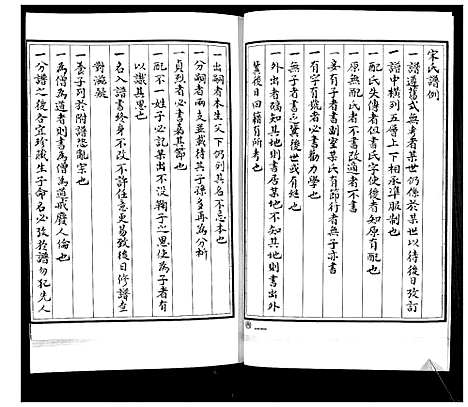 宋氏譜例
一譜遵舊式無考者某世仍係於某世以待後日改訂
一譜中橫列五層上下相承準服制也
一配氏失傳者但書氏字使後者知原有配也
一原無配氏者不書改適者不書
一妾有子者書副室某氏有節行者無子亦書
一有字有號者必書勸力學也
一無子者書止冀後世或有繼也
一外出者確知其地則書居某地不知其地則書出外
冀後日回籍有所考也
一出嗣者本生父下仍列其名不忘本也
一分嗣者兩支並載待其子孫多再為分析
一貞烈者必書嘉其節也
一配不一姓子必記某出不沒鞠子之恩使為子者有
以識其恩也
一名入譜書終身不改不許任意更易致後日修譜查
對滋疑
一養子列於附譜恐亂宗也
一為僧為道者則書為僧為道戒廢人倫也
一分譜之後各宜珍藏生子命名必攷於譜勿犯先人